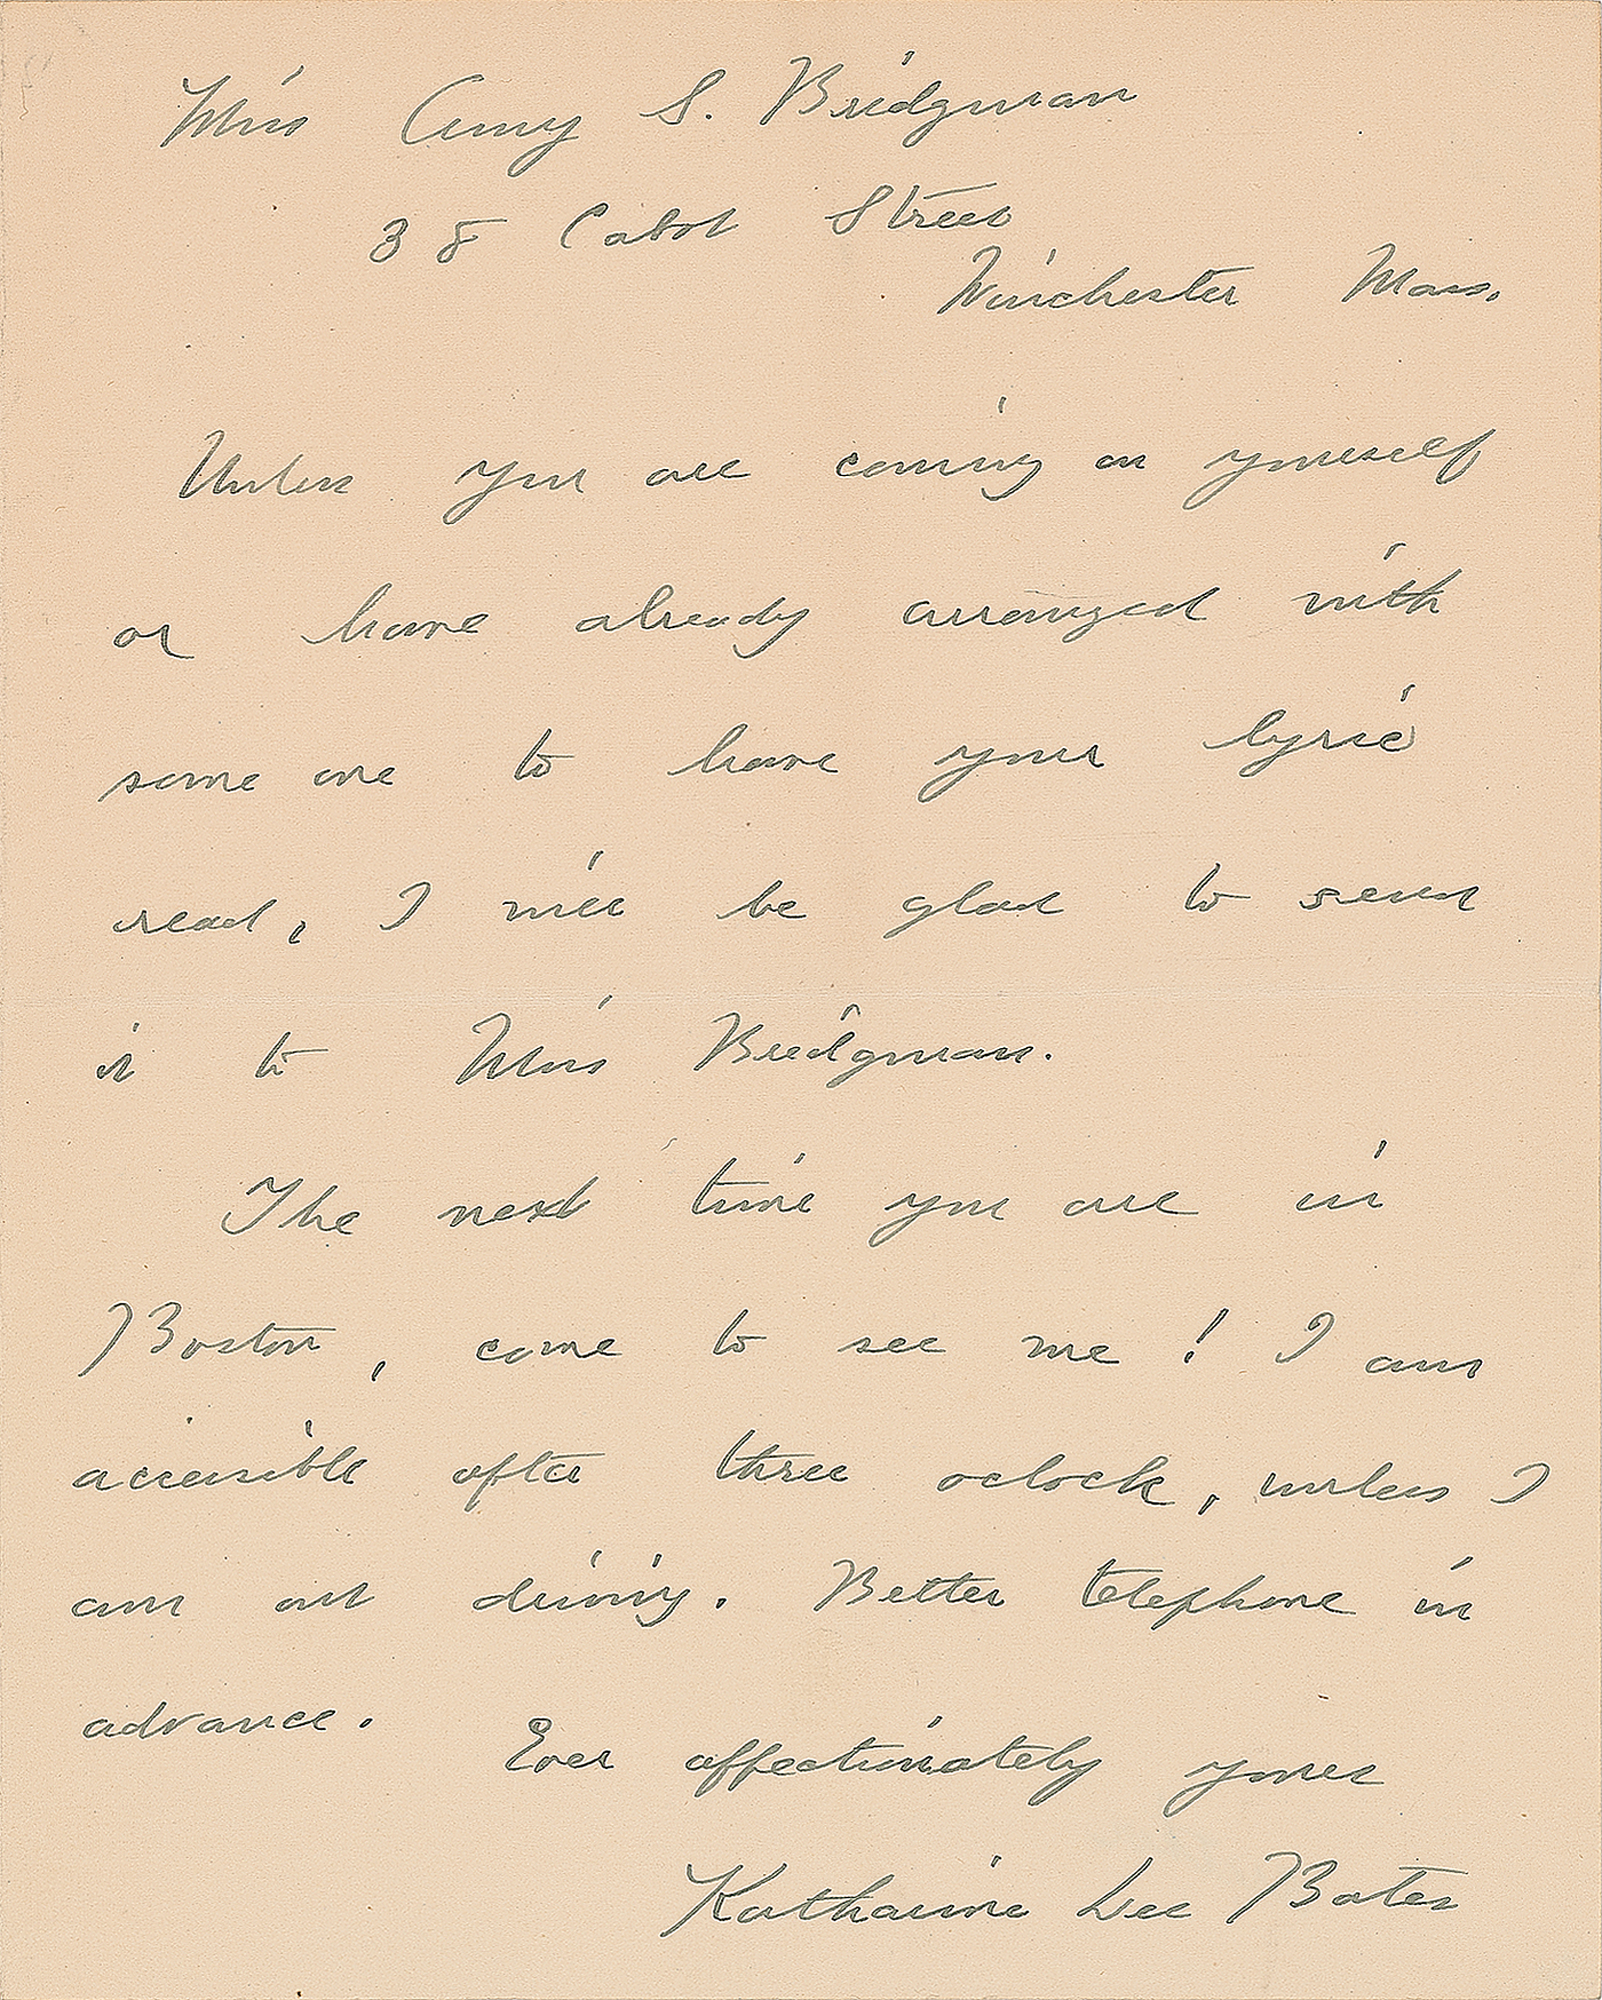 Miss Amy S. Bridgman
38 Cabot Street
Winchester Mass.
Unless you are coming on yourself
or have already arranged with
some one to have your lyric
read, I will be glad to send
it to Miss Bridgman.
The next time you are in
Boston, come to see me! I am
accessible after three oclock, unless I
am out dining. Better telephone in
advance.
Ever affectionately yours
Katharine Lee Bates